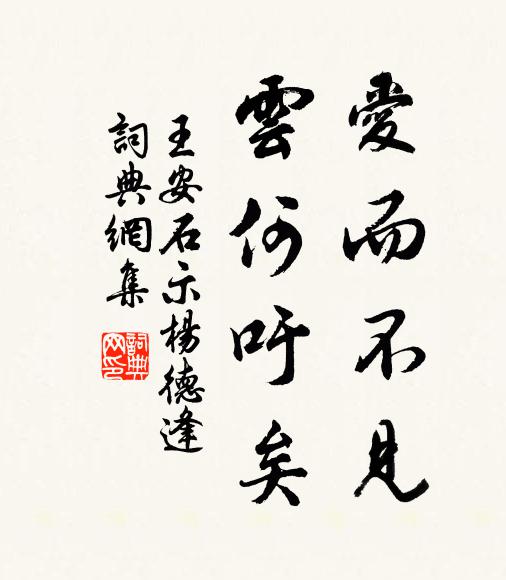 愛而不見
雲何吁矣
王安石示楊德逢
詞典網集
詞典
网印